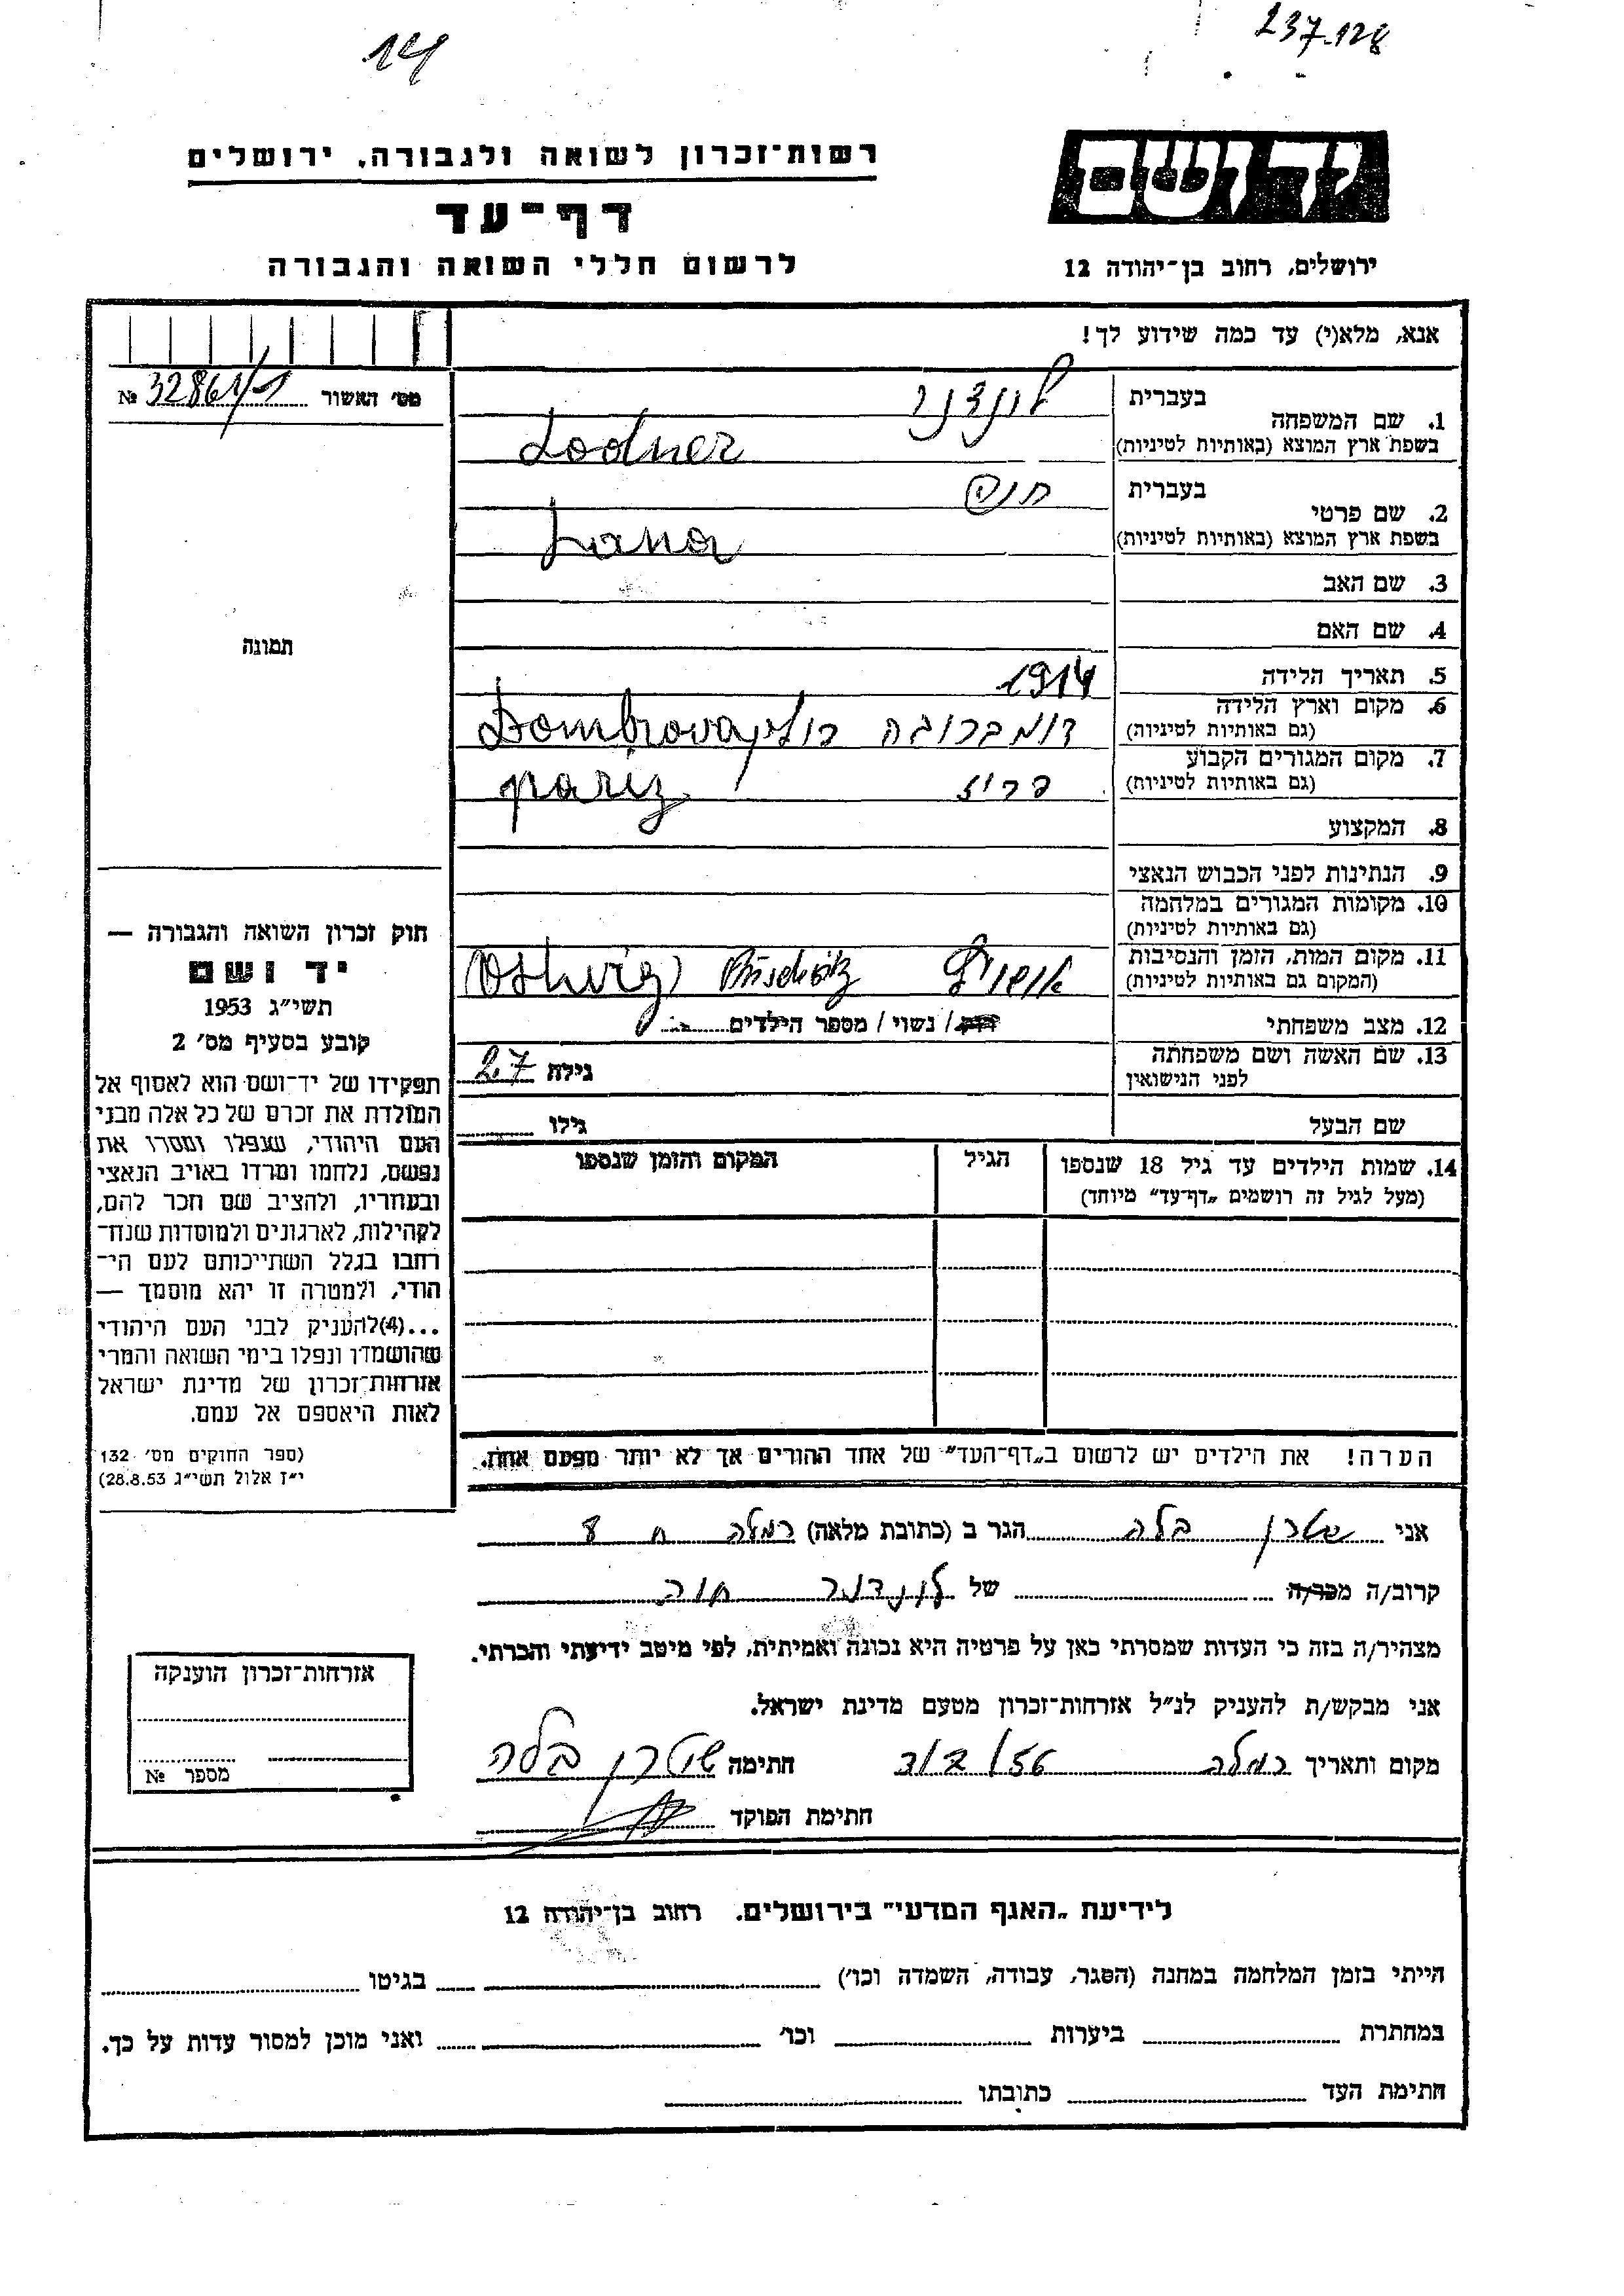 14
237.128
ידושם
רשות־זכרון לשואה ולגבורה, ירושלים
דף־עד
לרשום חללי השואה והגבורה
ירושלים, רחוב בן־יהודה 12
אנא, מלא(י) עד כמה שידוע לך!
מס׳ האשור № 32861/1
בעברית
1. שם המשפחה לונדנר
בשפת ארץ המוצא (באותיות לטיניות) Lodner
בעברית
2. שם פרטי
בשפת ארץ המוצא (באותיות לטיניות)
3. שם האב
4. שם האם
תמונה
5. תאריך הלידה 1914
6. מקום וארץ הלידה דומברובה
(גם באותיות לטיניות) Dombrova
7. מקום המגורים הקבוע פריז
(גם באותיות לטיניות) pariz
8. המקצוע
9. הנתינות לפני הכבוש הנאצי
10. מקומות המגורים במלחמה
(גם באותיות לטיניות)
11. מקום המות, הזמן והנסיבות
(המקום גם באותיות לטיניות)
12. מצב משפחתי רוק/ נשוי/ מספר הילדים
13. שם האשה ושם משפחתה
לפני הנישואין גילה 27
שם הבעל גילו
14. שמות הילדים עד גיל 18 שנספו הגיל המקום והזמן שנספו
(מעל לגיל זה רושמים „דף־עד״ מיוחד)
חוק זכרון השואה והגבורה —
יד ושם
תשי״ג 1953
קובע בסעיף מס׳ 2
תפקידו של יד־ושם הוא לאסוף אל
המולדת את זכרם של כל אלה מבני
העם היהודי, שנפלו ומסרו את
נפשם, נלחמו ומרדו באויב הנאצי
ובעוזריו, ולהציב שם וזכר להם,
לקהילות, לארגונים ולמוסדות שנח־
רבו בגלל השתייכותם לעם הי־
הודי, ולמטרה זו יהא מוסמך —
...(4)להעניק לבני העם היהודי
שהושמדו ונפלו בימי השואה והמרי
אזרחות־זכרון של מדינת ישראל
לאות היאספם אל עמם.
(ספר החוקים מס׳ 132
י״ז אלול תשי״ג 28.8.53)
הערה! את הילדים יש לרשום ב„דף־העד״ של אחד ההורים אך לא יותר מפעם אחת.
אני שטרן בלה הגר ב (כתובת מלאה) רמלה ח 8
קרוב/ה מכר/ה של לונדנר חנה
מצהיר/ה בזה כי העדות שמסרתי כאן על פרטיה היא נכונה ואמיתית, לפי מיטב ידיעתי והכרתי.
אני מבקש/ת להעניק לנ״ל אזרחות־זכרון מטעם מדינת ישראל.
מקום ותאריך רמלה חתימה שטרן בלה
חתימת הפוקד
אזרחות־זכרון הוענקה
מספר №
לידיעת „האגף המדעי״ בירושלים, רחוב בן־יהודה 12
הייתי בזמן המלחמה במחנה (הסגר, עבודה, השמדה וכו׳) בגיטו
במחתרת ביערות וכו׳ ואני מוכן למסור עדות על כך.
חתימת העד כתובתו